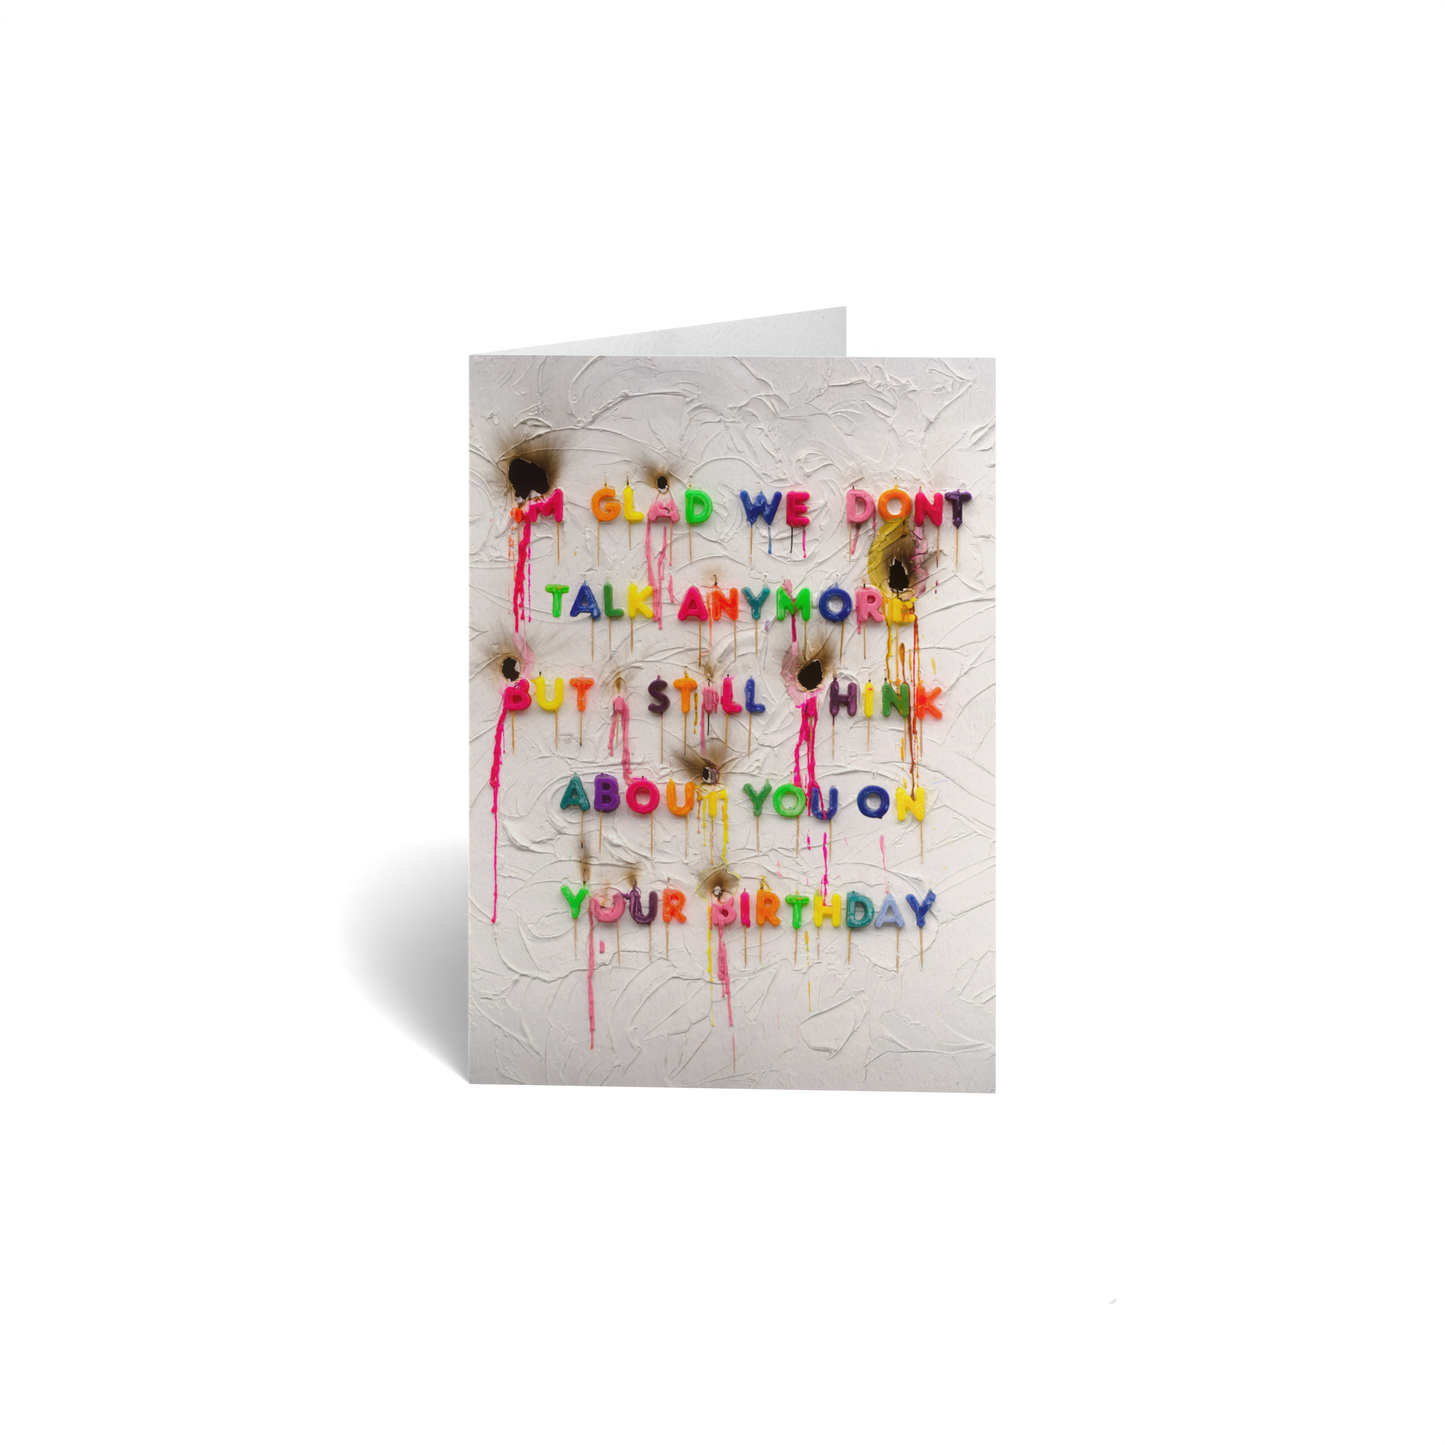 IM GLAD WE DONT
TALK ANYMORE
BUT I STILL THINK
ABOUT YOU ON
YOUR BIRTHDAY